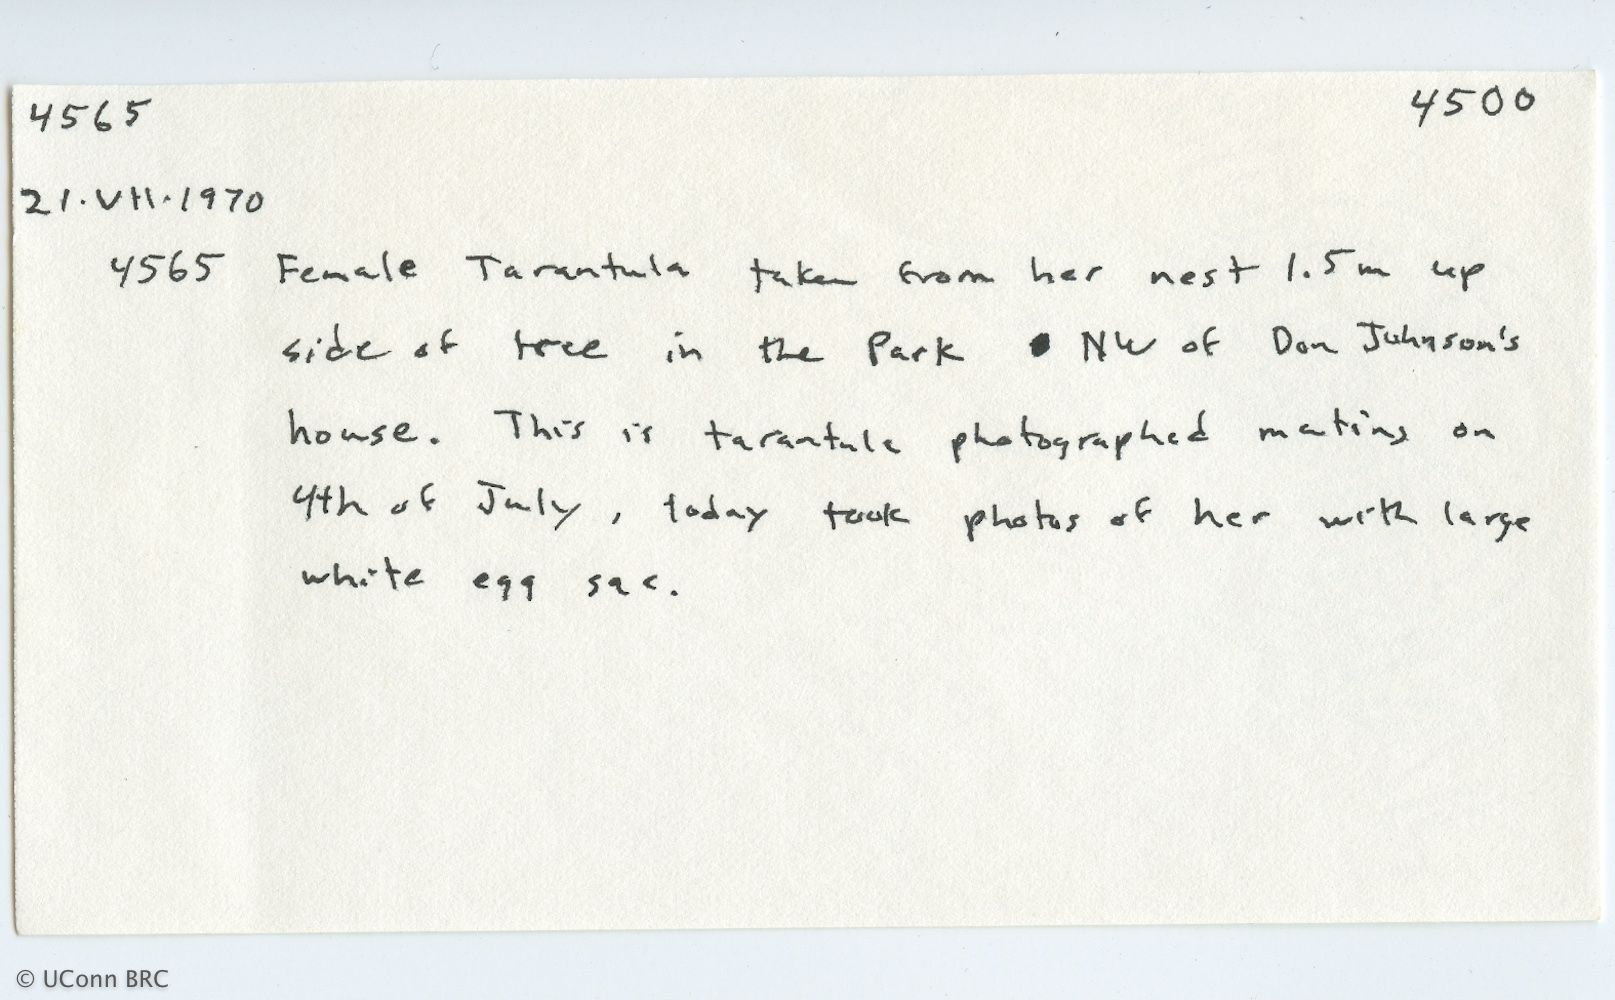 4565 4500
21.VII.1970
4565 Female Tarantula taken from her nest 1.5m up
side of tree in the Park NW of Don Johnson's
house. This is tarantula photographed mating on
4th of July, today took photos of her with large
white egg sac.
© UConn BRC